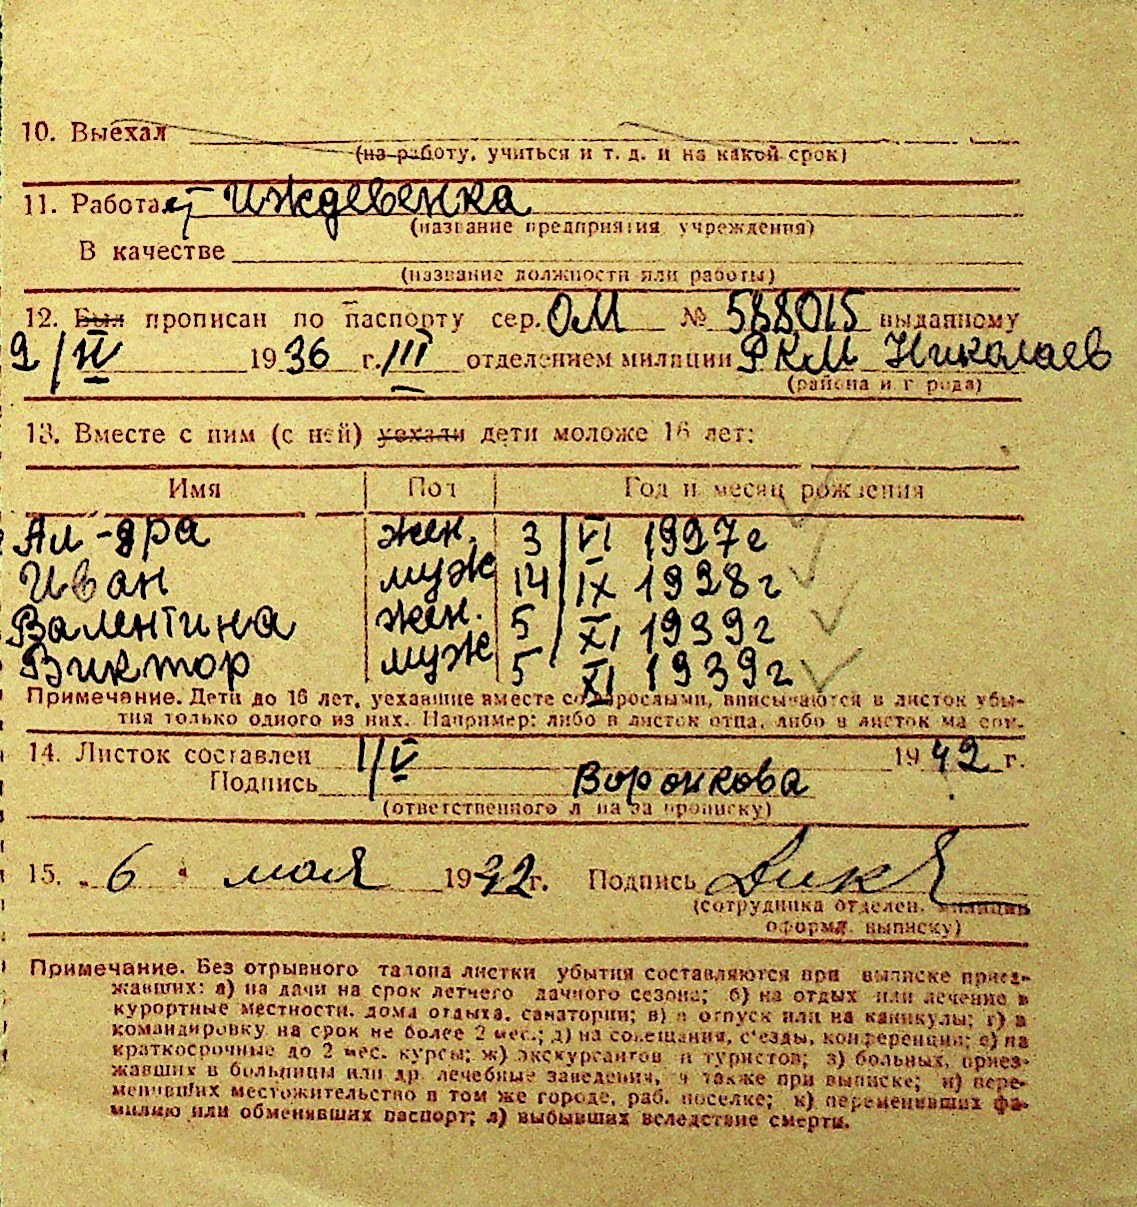 10. Выехал
(на работу, учиться и т. д. и на какой срок)
11. Работает Иждевенка
(название предприятия учреждения)
В качестве
(название должности или работы)
12. Был прописан по паспорту сер. ОМ № 588015 выданному
9/IV 1936 г. III отделением милиции РКМ Николаев
(района и города)
13. Вместе с ним (с ней) уехали дети моложе 16 лет:
Имя Пол Год и месяц рождения
Ал-дра жен. 3/VI 1927г
Иван муж 14/IX 1928г
Валентина жен. 5/XI 1939г
Виктор муж 5/XI 1939г
Примечание. Дети до 16 лет, уехавшие вместе со взрослыми, вписываются в листок убы-
тия только одного из них. Например: либо в листок отца, либо в листок матери.
14. Листок составлен 1/V 1942 г.
Подпись Воронкова
(ответственного лица за прописку)
15. „6“ мая 1942г. Подпись
(сотрудника отделен. милиции
оформ. выписку)
Примечание. Без отрывного талона листки убытия составляются при выписке приез-
жавших: а) на дачи на срок летнего дачного сезона; б) на отдых или лечение в
курортные местности, дома отдыха, санатории; в) в отпуск или на каникулы; г) в
командировку на срок не более 2 мес.; д) на совещания, съезды, конференции; е) на
краткосрочные до 2 мес. курсы; ж) экскурсантов и туристов; з) больных, приез-
жавших в больницы или др. лечебные заведения, а также при выписке; и) пере-
менивших местожительство в том же городе, раб. поселке; к) переменивших фа-
милию или обменявших паспорт; л) выбывших вследствие смерти.